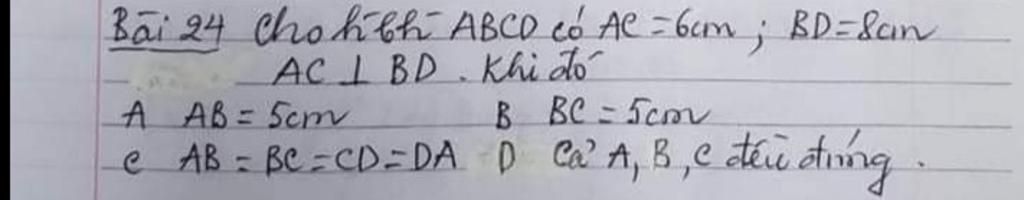 Bài 24 Cho hbh ABCD có AC = 6cm ; BD = 8cm
AC ⊥ BD . Khi đó
A AB = 5cm B BC = 5cm
C AB = BC = CD = DA D Cả A, B, C đều đúng .